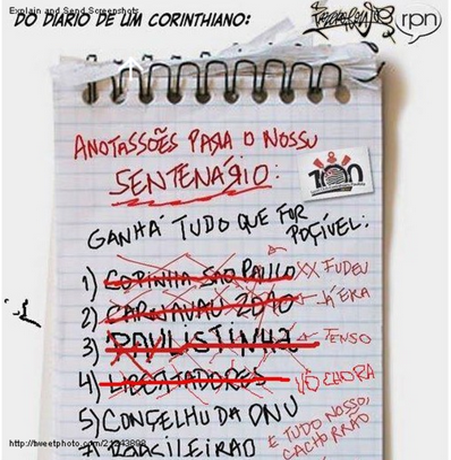 Explain and Send Screenshots
DO DIÁRIO DE UM CORINTHIANO:
rpn
ANOTASSÕES PARA O NOSSU
SENTENÁRIO:
100
GANHÁ TUDO QUE FOR
POÇÍVEL:
1) COPINHA SAO PAULO XX FUDEU
2) CARNAVAU 2010 ← K'ÉRA
3) PAULISTINHA ← TENSO
4) LIBERTADORES VÔ CHORA
5) CONÇELHU DA ONU
E TUDO NOSSO,
CACHORRÃO
BRASILEIRÃO
http://tweetphoto.com/21243898